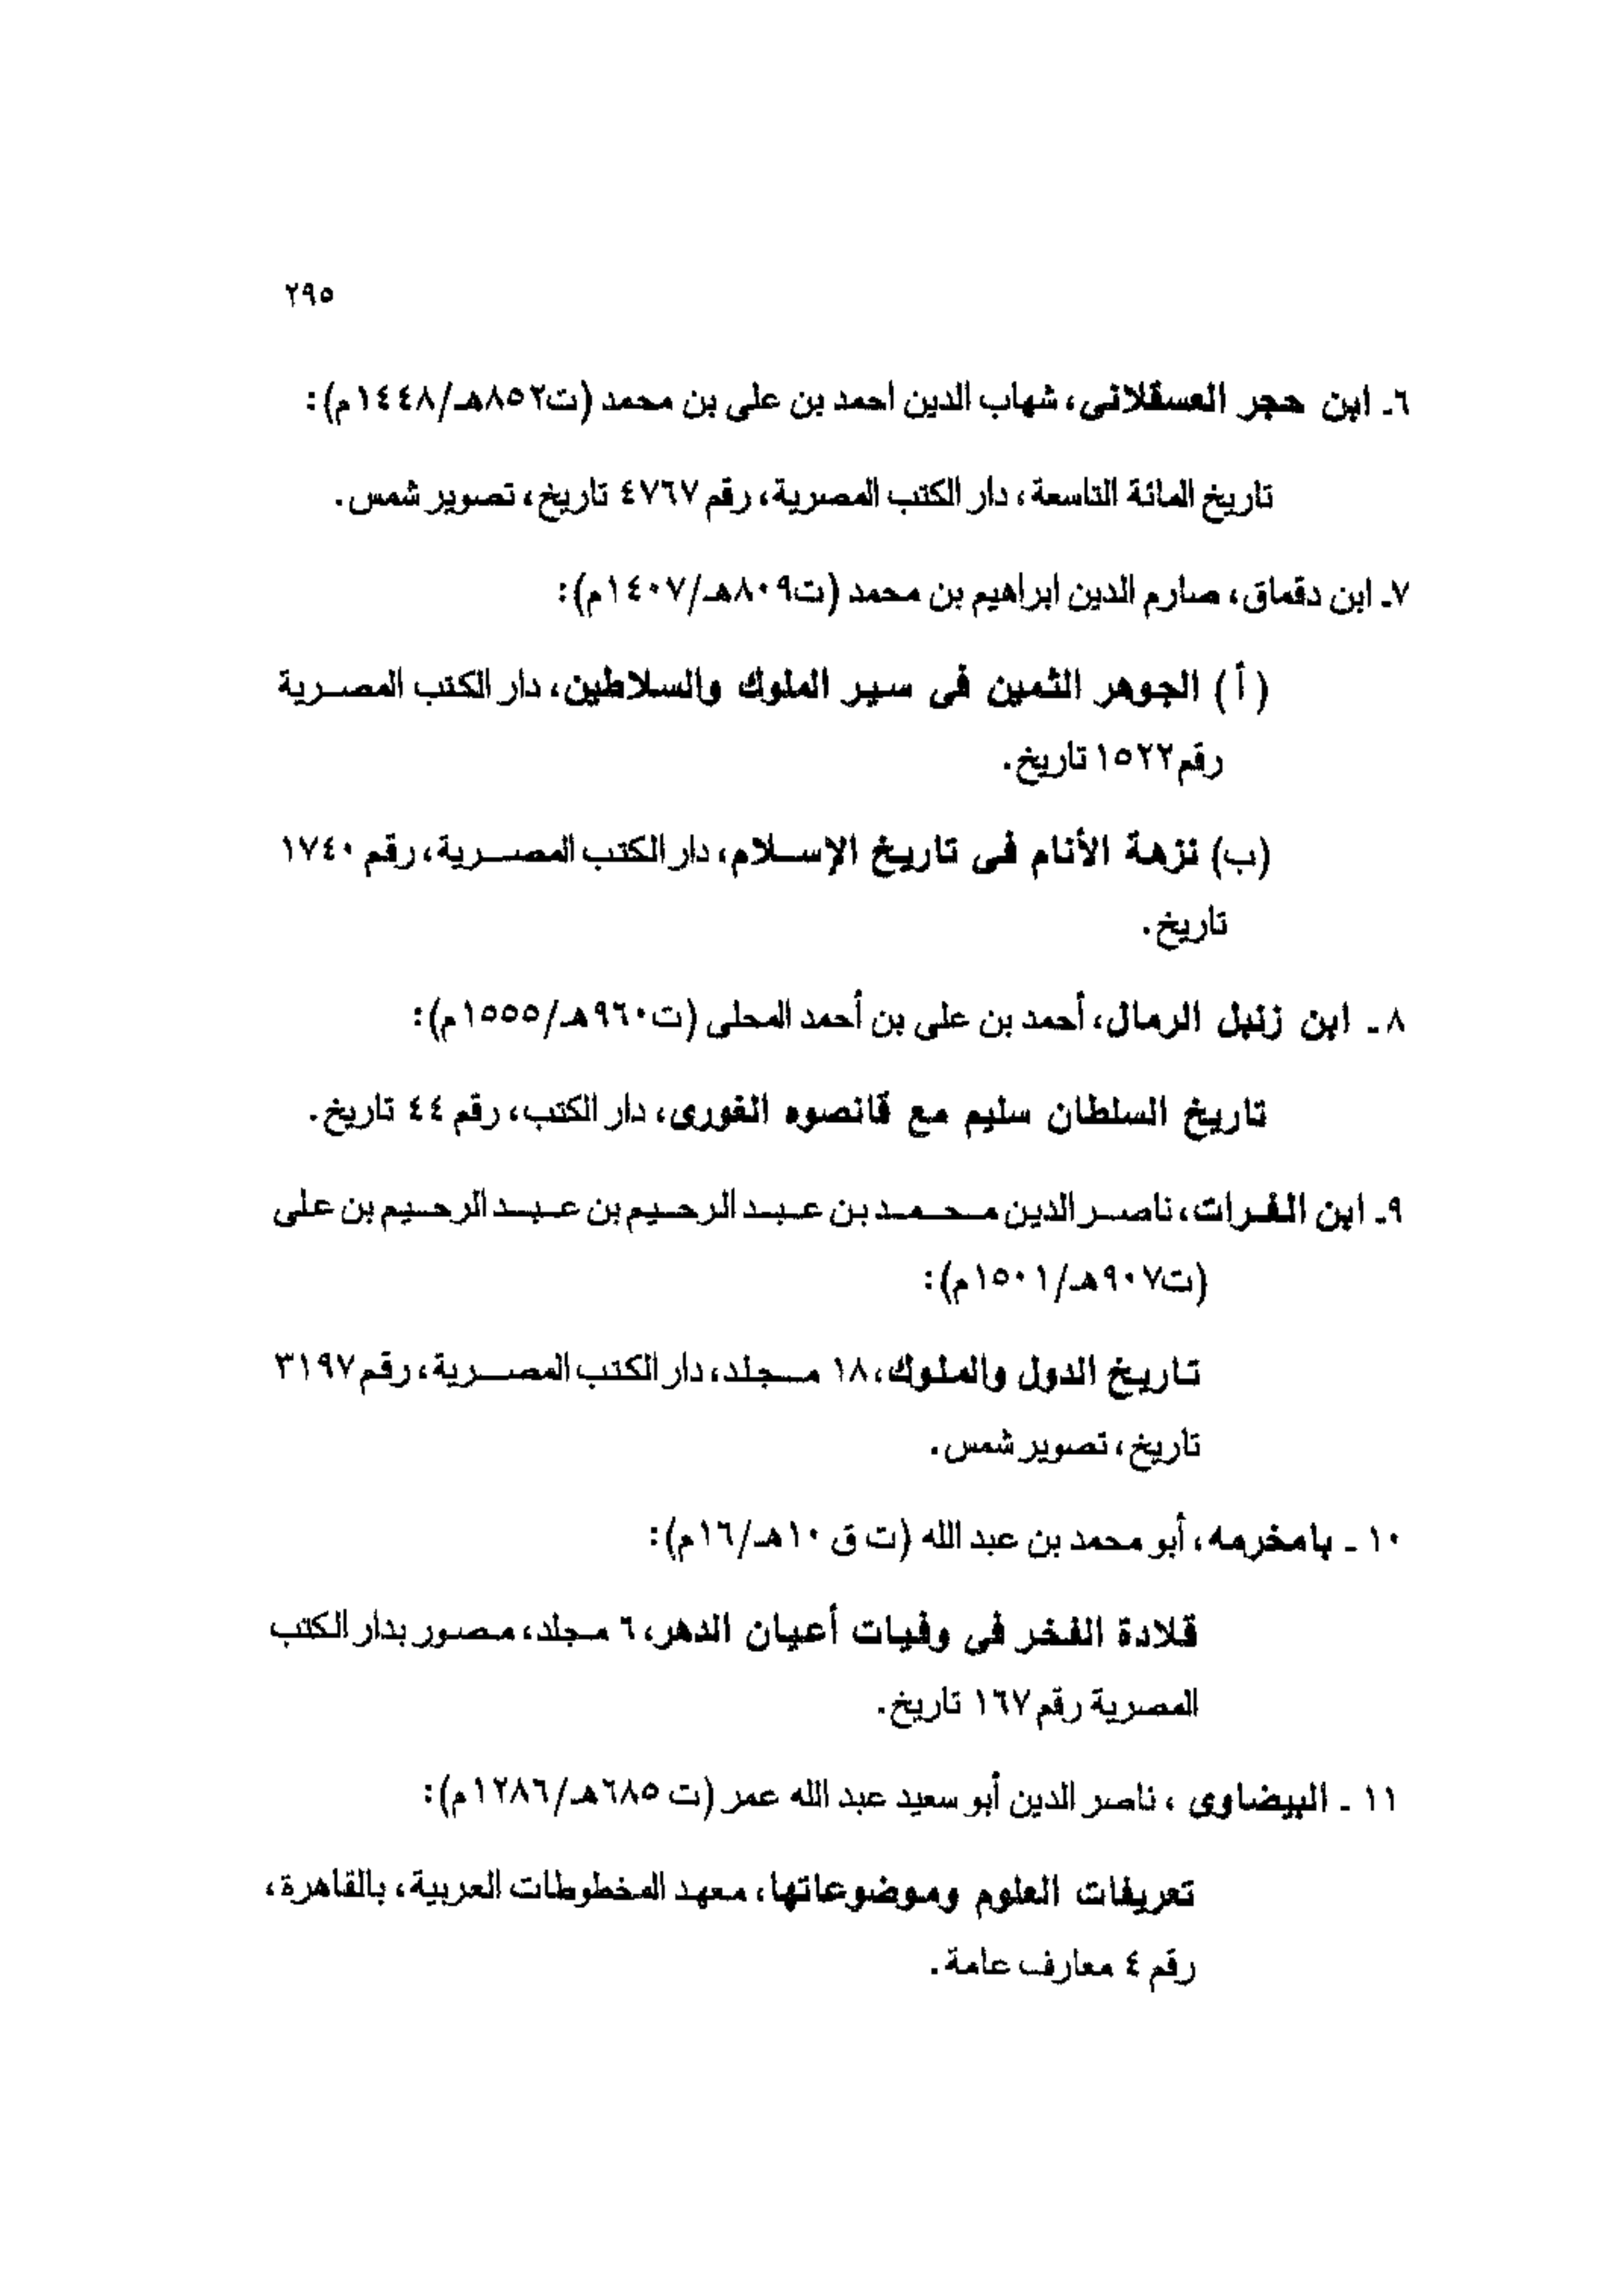 ٢٩٥
٦ـ ابن حجر العسقلانى، شهاب الدين احمد بن على بن محمد (ت٨٥٢هـ/١٤٤٨م):
تاريخ المائة التاسعة، دار الكتب المصرية، رقم ٤٧٦٧ تاريخ، تصوير شمس.
٧ـ ابن دقماق، صارم الدين ابراهيم بن محمد (ت٨٠٩هـ/١٤٠٧م):
(أ) الجوهر الثمين فى سير الملوك والسلاطين، دار الكتب المصرية
رقم ١٥٢٢ تاريخ.
(ب) نزهة الأنام فى تاريخ الإسلام، دار الكتب المصرية، رقم ١٧٤٠
تاريخ.
٨ ـ ابن زنبل الرمال، أحمد بن على بن أحمد المحلى (ت٩٦٠هـ/١٥٥٥م):
تاريخ السلطان سليم مع قانصوه الغورى، دار الكتب، رقم ٤٤ تاريخ.
٩ـ ابن الفرات، ناصر الدين محمد بن عبد الرحيم بن عبد الرحيم بن على
(ت٩٠٧هـ/١٥٠١م):
تاريخ الدول والملوك، ١٨ مجلد، دار الكتب المصرية، رقم ٣١٩٧
تاريخ، تصوير شمس.
١٠ ـ بامخرمه، أبو محمد بن عبد الله (ت ق ١٠هـ/١٦م):
قلادة الفخر في وفيات أعيان الدهر، ٦ مجلد، مصور بدار الكتب
المصرية رقم ١٦٧ تاريخ.
١١ ـ البيضاوى ، ناصر الدين أبو سعيد عبد الله عمر (ت ٦٨٥هـ/١٢٨٦م):
تعريفات العلوم وموضوعاتها، معهد المخطوطات العربية، بالقاهرة،
رقم ٤ معارف عامة.